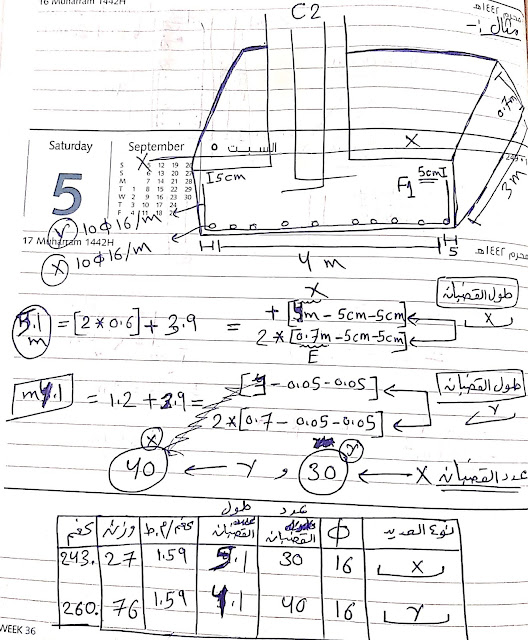 16 Muharram 1442H
محرم ١٤٤٢هـ
مثال :-
C2
0.7m
3m
X
السبت
Saturday
September
5
S 5 12 19 26
S 6 13 20 27
M 7 14 21 28
T 1 8 15 22 29
W 2 9 16 23 30
T 3 10 17 24
F 4 11 18 25
X
I5cm
F1
5cmI
Y 10ϕ16/m
17 Muharram 1442H
محرم ١٤٤٢هـ
X 10ϕ16/m
4 m
5
طول القضبان
X
X
5.1 m = [2*0.6] + 3.9 = + [4m - 5cm - 5cm]
2*[0.7m - 5cm - 5cm]
طول القضبان
Y
m4.1 = 1.2 + 2.9 = [3 - 0.05 - 0.05]
2*[0.7 - 0.05 - 0.05]
عدد القضبان X ← 30 Y , Y ← 40 X
نوع الحديد
ϕ
عدد القضبان
طول القضبان
كغم/م.ط
وزن
كغم
X
16
30
5.1
1.59
27
243.
Y
16
40
4.1
1.59
76
260.
WEEK 36